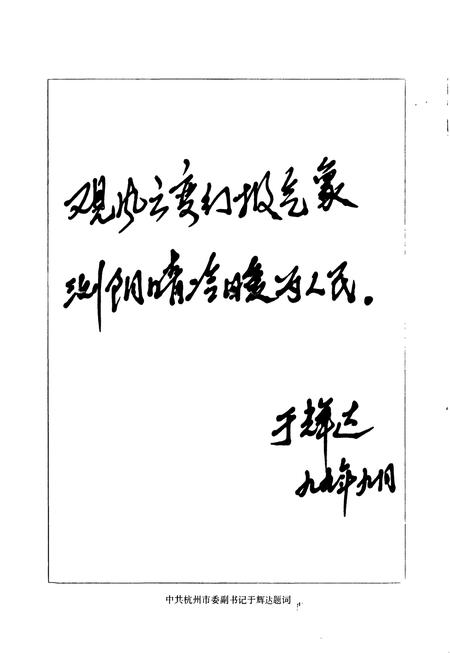 观风云变幻报气象
测阴晴冷暖为人民。
于辉达
九九年九月
中共杭州市委副书记于辉达题词